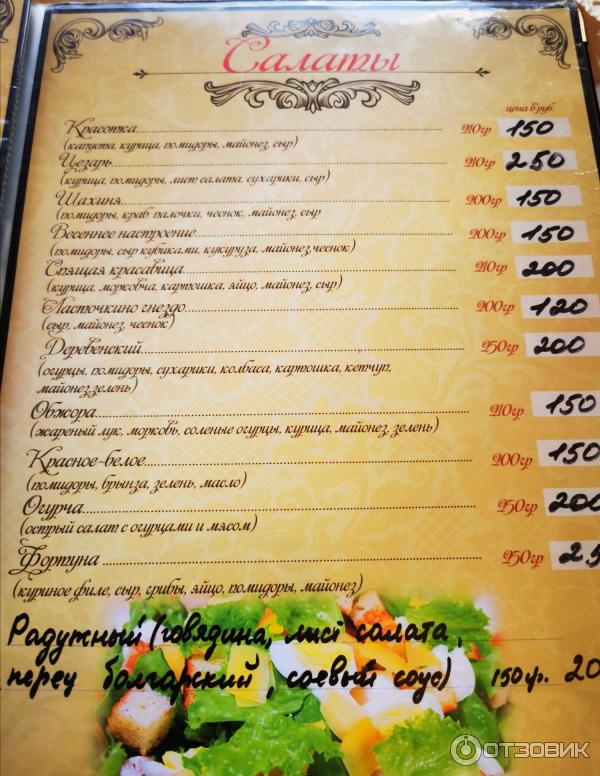 Салаты
цена в руб.
Красотка 210гр 150
(капуста, курица, помидоры, майонез, сыр)
Цезарь 210гр 250
(курица, помидоры, лист салата, сухарики, сыр)
Шахиня 200гр 150
(помидоры, краб. палочки, чеснок, майонез, сыр
Весеннее настроение 200гр 150
(помидоры, сыр кубиками, кукуруза, майонез,чеснок)
Спящая красавица 210гр 200
(курица, морковча, картошка, яйцо, майонез, сыр)
Ласточкино гнездо 200гр 120
(сыр, майонез, чеснок)
Деревенский 250гр 200
(огурцы, помидоры, сухарики, колбаса, картошка, кетчуп,
майонез,зелень)
Обжора 210гр 150
(жареный лук, морковь, соленые огурцы, курица, майонез, зелень)
Красное-белое 200гр 150
(помидоры, брынза, зелень, масло)
Огурча 250гр 200
(острый салат с огурцами и мясом)
Фортуна 250гр 25
(куриное филе, сыр, грибы, яйцо, помидоры, майонез)
Радужный (говядина, лист салата,
перец болгарский, соевый соус) 150гр. 20
ОТЗОВИК